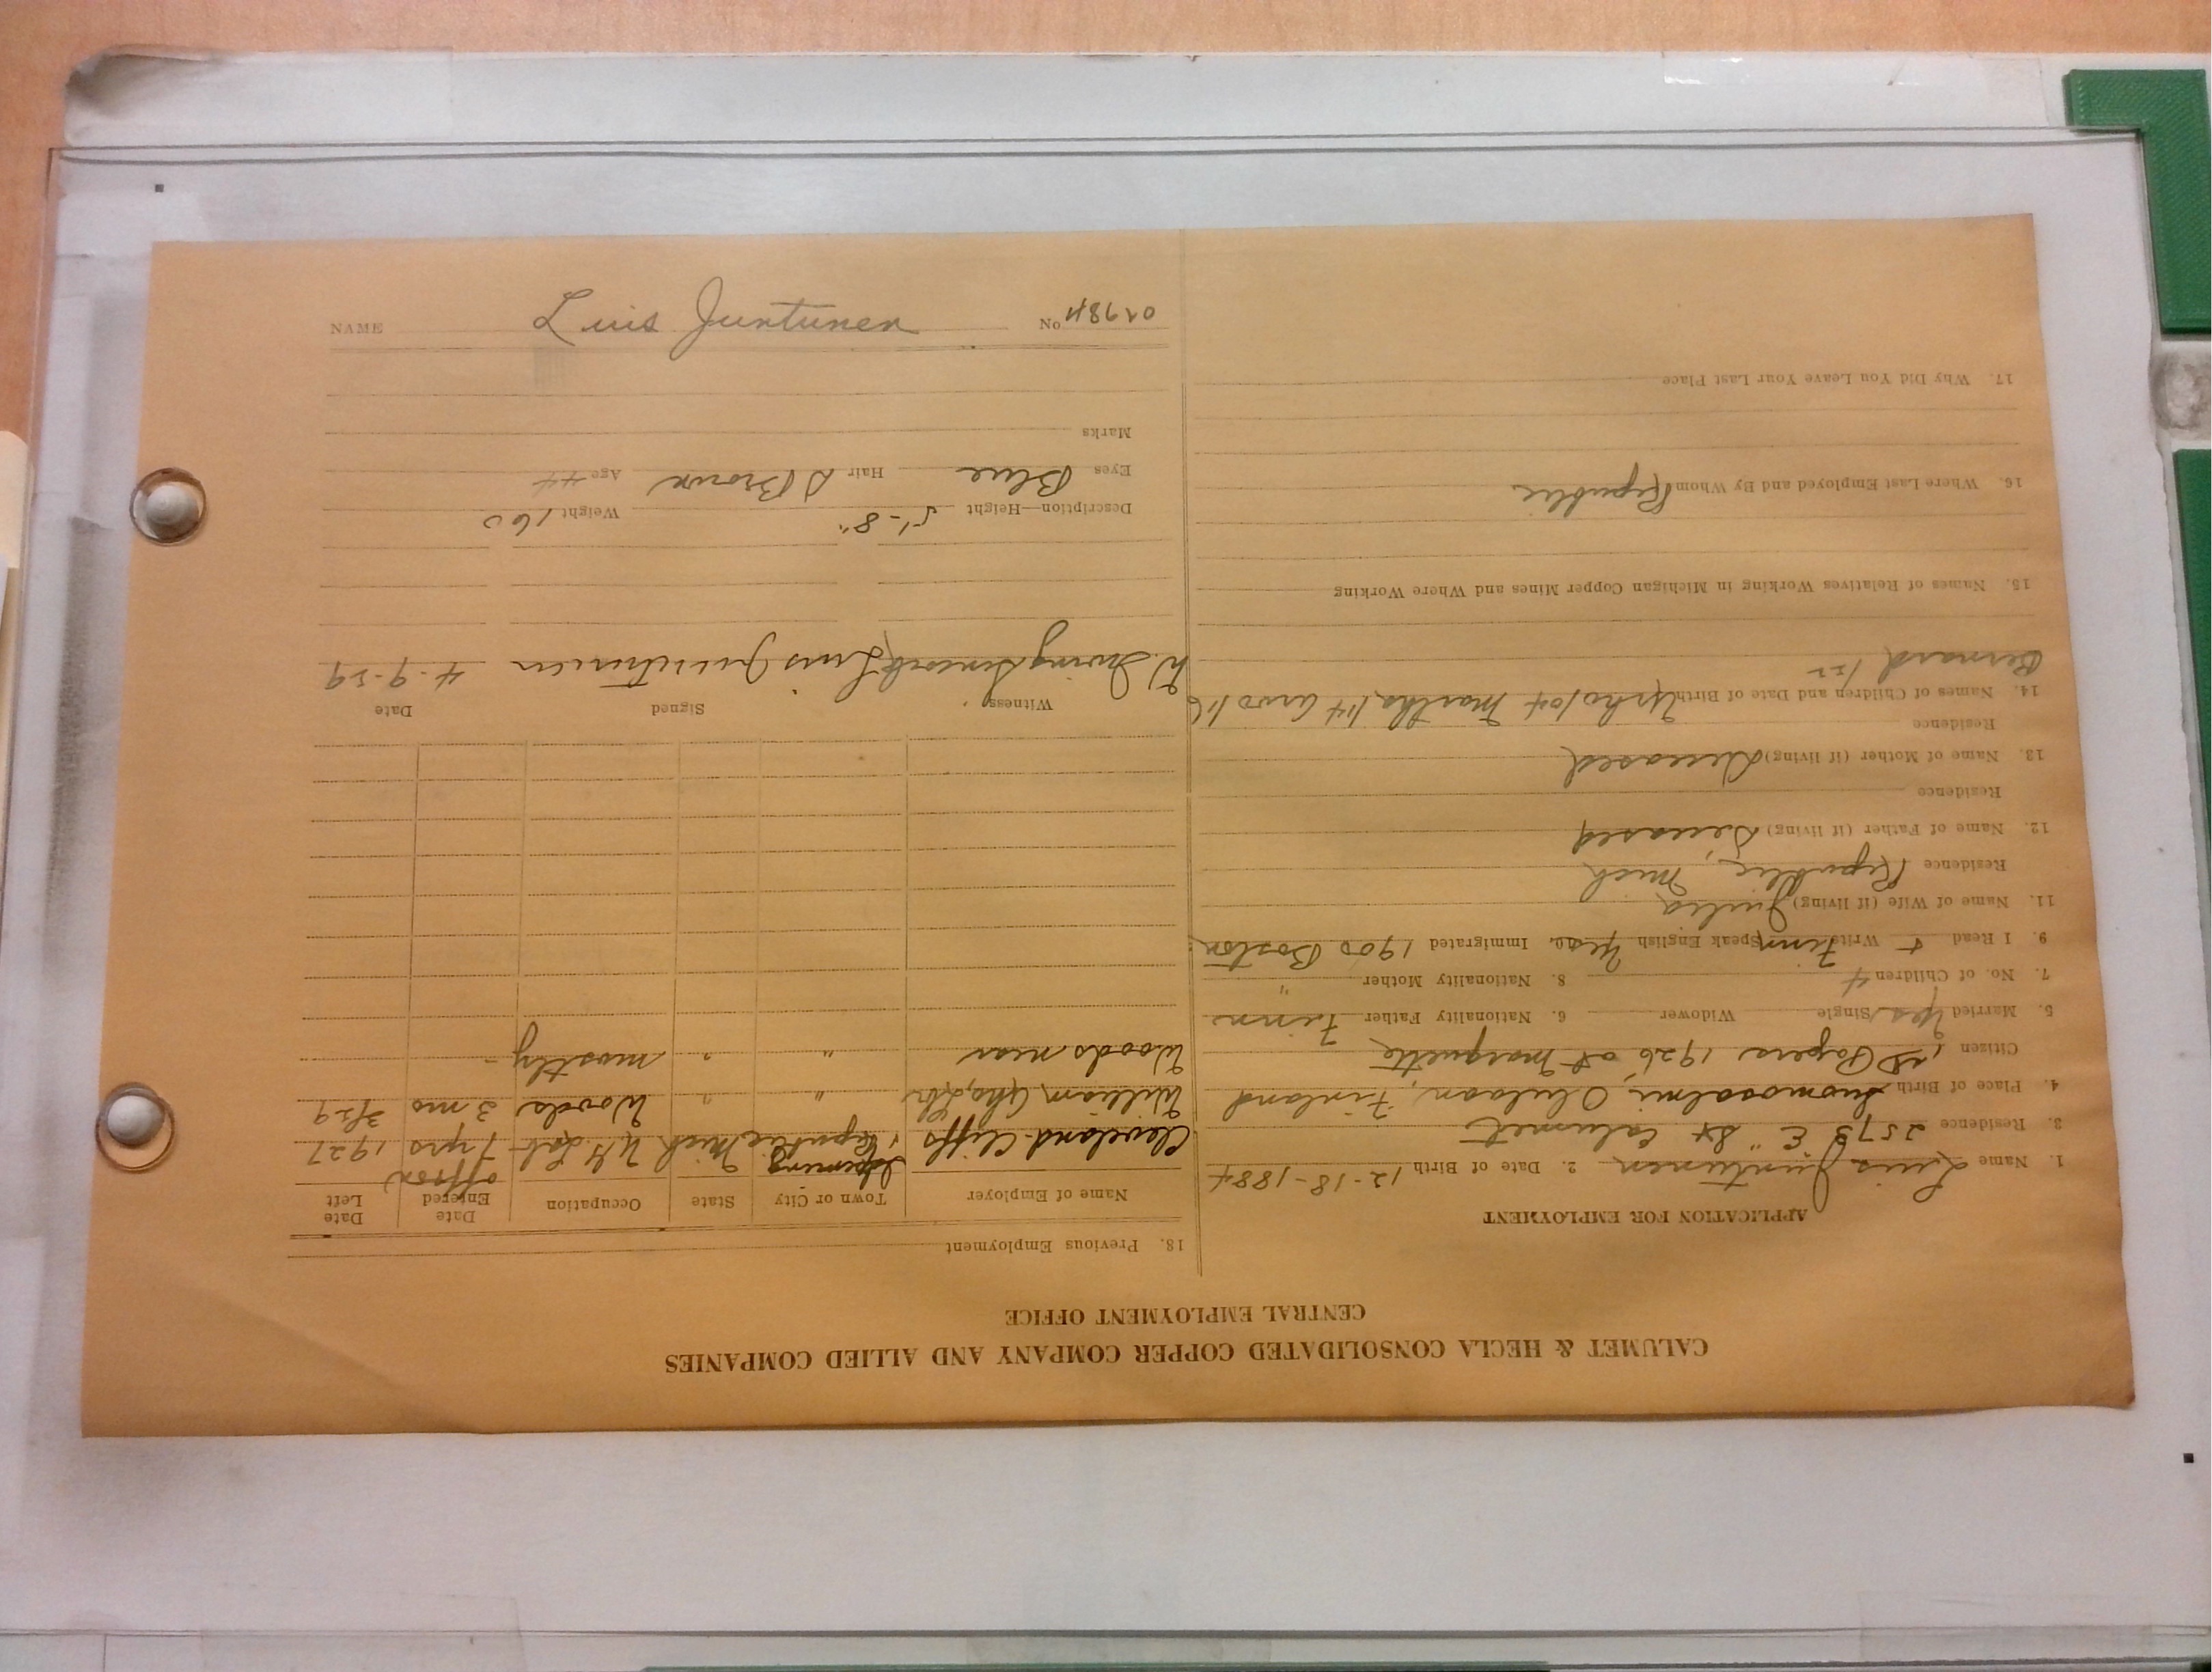 CALUMET & HECLA CONSOLIDATED COPPER COMPANY AND ALLIED COMPANIES
CENTRAL EMPLOYMENT OFFICE
APPLICATION FOR EMPLOYMENT
1. Name Luis Juntunen 2. Date of Birth 12-18-1884
3. Residence 2573 "E" St Calumet
4. Place of Birth Suomosalmi Olulaan, Finland
Citizen 1st Papers 1926 at Marquette
5. Married Yes Single Widower 6. Nationality Father Finn
7. No. of Children 4 8. Nationality Mother "
9. I Read + Write Finn Speak English Yes Immigrated 1900 Boston
11. Name of Wife (if living) Julia
Residence Republic, Mich
12. Name of Father (if living) Deceased
Residence
13. Name of Mother (if living) Deceased
Residence
14. Names of Children and Date of Birth Urho/04 Martha/14 Arvo/16
Bernard/22
15. Names of Relatives Working in Michigan Copper Mines and Where Working
16. Where Last Employed and By Whom Republic
17. Why Did You Leave Your Last Place
18. Previous Employment
Name of Employer Town or City State Occupation Date Entered Date Left
Cleveland-Cliffs Ishpeming & Republic Mich U G Lab approx 7 yrs 1927
William " " Woods 3 mo 3/29
Woods near " " mostly -
Witness Signed Date
W. Irving Luis Juntunen 4-9-29
Description—Height 5'-8" Weight 160
Eyes Blue Hair D Brown Age 44
Marks
NAME Luis Juntunen No 01984